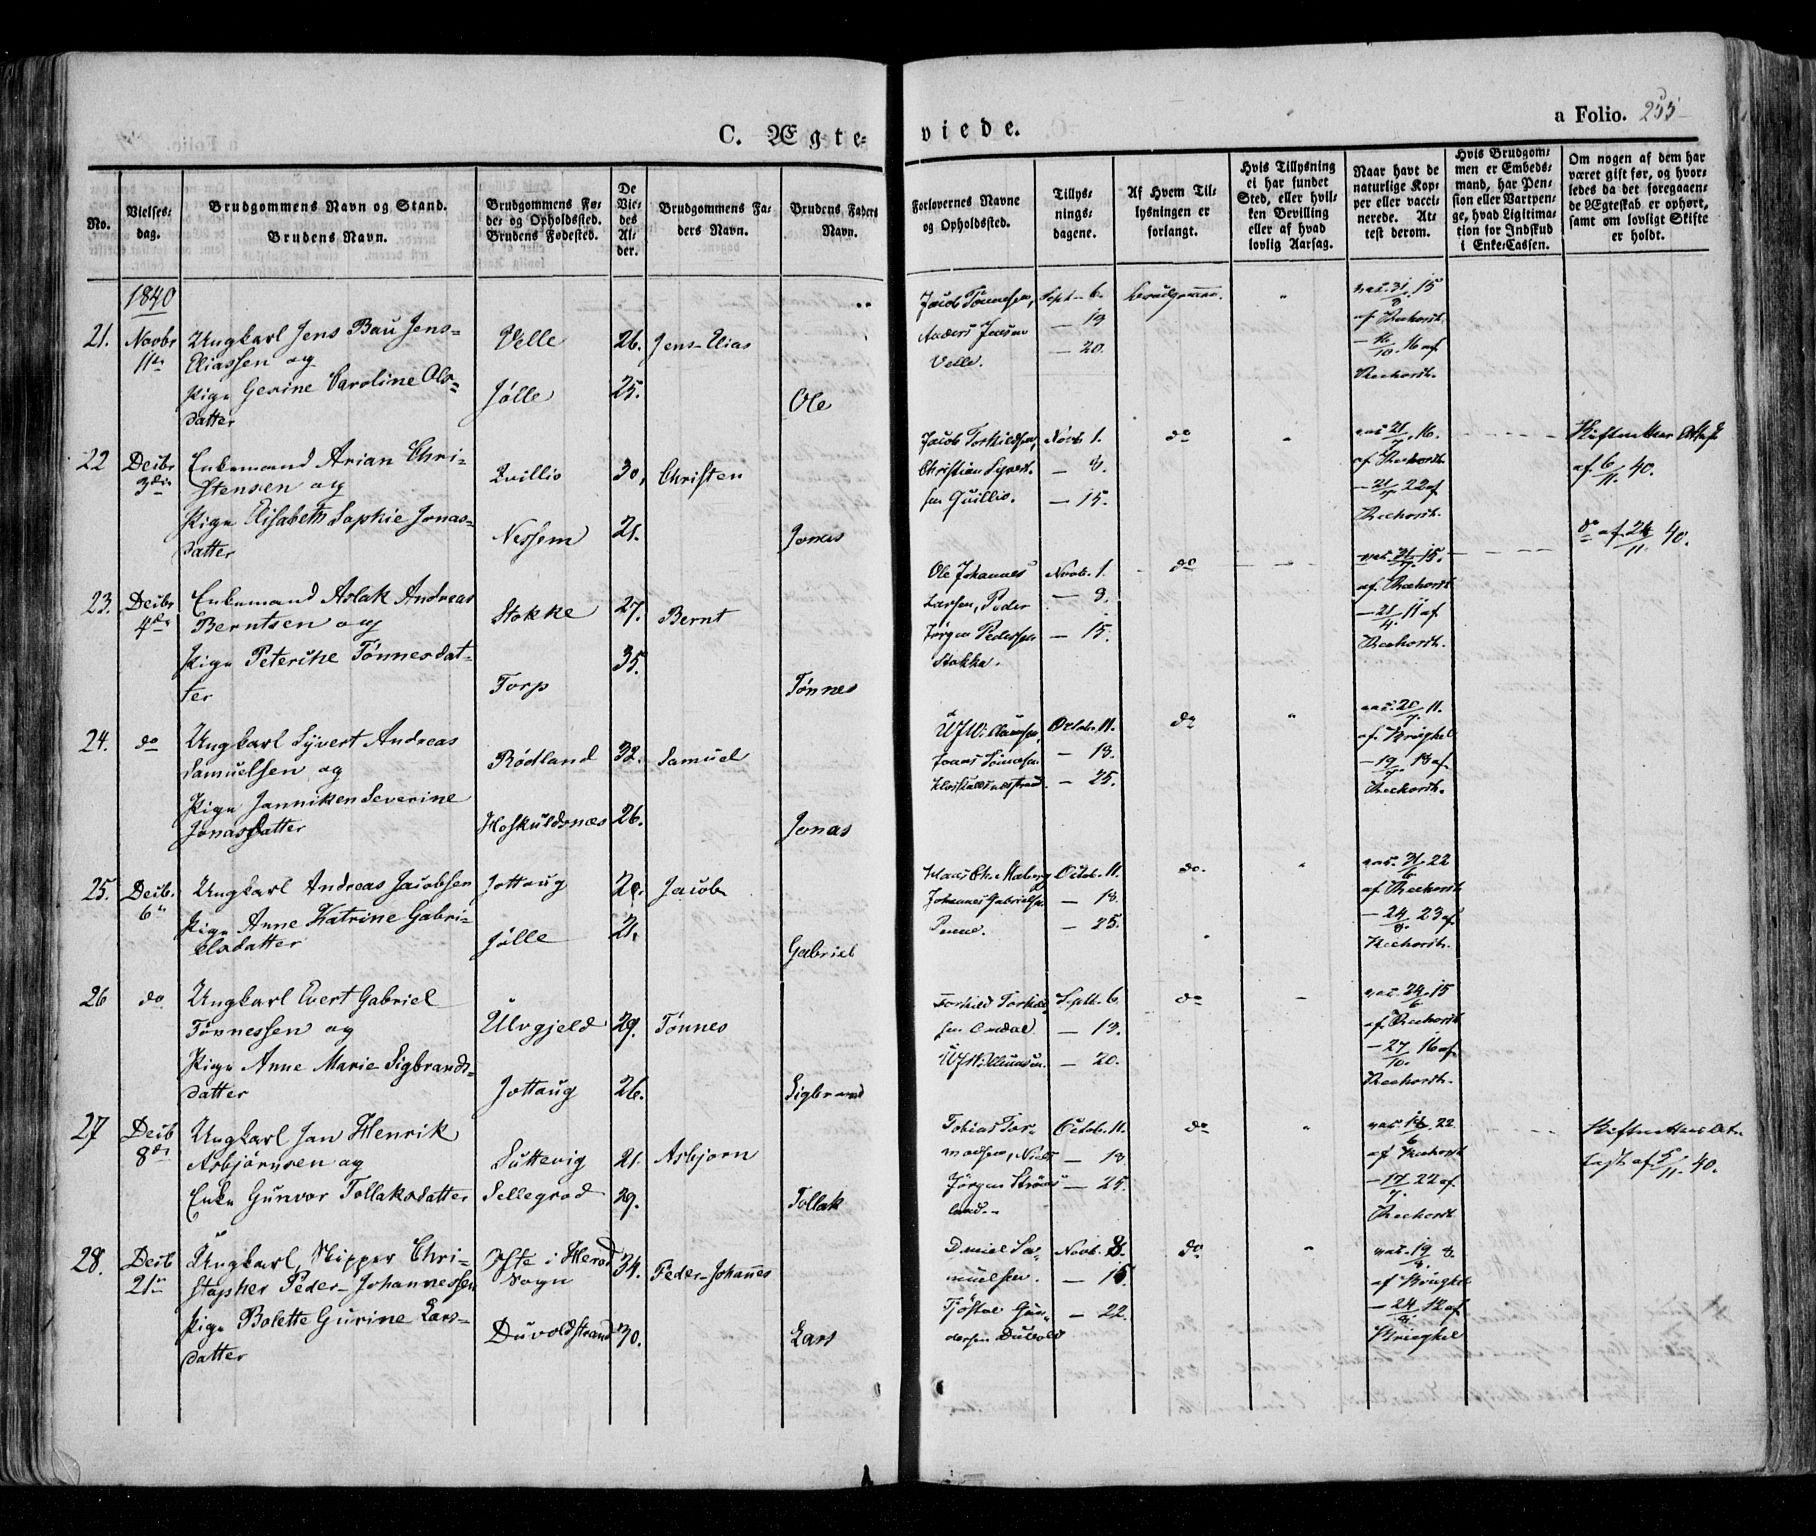 C. Ægte-
viede.
a Folio. 255
No.
Vielses-
dag.
Brudgommens Navn og Stand.
Brudens Navn.
Brudgommens Fø-
de- og Opholdssted.
Brudens Fødested.
De
Vie-
des
Al-
der.
Brudgommens Fa-
ders Navn.
Brudens Faders
Navn.
Forlovernes Navne
og Opholdssted.
Tillys-
nings-
dagene.
Af Hvem Til-
lysningen er
forlangt.
Hvis Tillysning
ei har fundet
Sted, eller hvil-
ken Bevilling
eller af hvad
lovlig Aarsag.
Naar havt de
naturlige Kop-
per eller vacci-
nerede. At-
test derom.
Hvis Brudgom-
men er Embeds-
mand, har Pen-
sion eller Vartpen-
ge, hvad Ligitima-
tion for Indskud
i Enke-Cassen.
Om nogen af dem har
været gift før, og hvor-
ledes da det foregaaen-
de Ægteskab er ophørt,
samt om lovligt Skifte
er holdt.
1840
21. Novbr 11te
Ungkarl Jens Bau Jens-
Eliassen og
Pige Gerine Caroline Ols-
datter
Velle
Jølle
26.
25.
Jens-Elias
Ole
Jacob Tønnesen,
Anders Jensen
Velle.
Sept. 6.
— 13
— 20.
Brudgommen.
vac. 31 15
af Reehorst.
10. 16 af
Reehorst.
22 Decbr 3die
Enkemand Arian Chri-
stensen og
Pige Elisabeth Sophie Jonas-
datter
Qvillio
Nessem
30,
21.
Christen
Jonas
Jacob Torkildsen,
Christian Syvert-
sen Quillio.
Novb. 1.
— 8.
— 15.
do
vac. 21/7 16.
af Reehorst
— 21/7 22 af
Reehorst.
Skifteatter
af 6/11 40.
23. Decbr 4de
Enkemand Aslak Andreas
Berntsen og
Pige Peterike Tønnesdat-
ter
Stokke
Torp
27.
35.
Bernt
Tønnes
Ole Johannes
Larsen, Peder
Jørgen Pedersen
Stokke.
Novb. 1.
— 8.
— 15.
do
vac. 15.
af Reehorst
— 21/4. 11 af
Reehorst.
do af 24/11. 40.
24. do
Ungkarl Syvert Andreas
Samuelsen og
Pige Janniken Severine
Jonasdatter
Rødland
Hoskuldsnæs
32.
26.
Samuel
Jonas
Octob. 11.
— 18.
— 25.
do
vac. 20/7. 11.
af Krughel
— 19/7. 18 af
Reehorst.
25. Decb. 6te
Ungkarl Andreas Jacobsen
Pige Anne Katrine Gabri-
elsdatter
Jottaug
Jølle
21.
Jacob
Gabriel
Johannes Gabrielsen
Penne.
Octob. 11.
— 18.
— 25.
do.
vac. 21/6 22
af Reehorst
— 24/8. 23 af
Reehorst.
26 do
Ungkarl Evert Gabriel
Tønnessen og
Pige Anne Marie Sigbrands-
datter
Ulvgjeld
Jottaug
29.
26.
Tønnes
Sigbrand
Torkild Torkild-
sen Omdal
Septb. 6.
— 13.
— 20.
do
vac. 24/6. 15
af Reehorst
— 27/10. 16 af
Reehorst.
27 Decb 8de
Ungkarl Jan Henrik
Asbjørnsen og
Enke Gunvor Tollaksdatter
Suttevig
Sellegrod
21.
29.
Asbjørn
Tollak
Tobias Tor-
madsen, Niels
Jørgen Strøms-
land.
Octob. 11.
— 18.
— 25.
do
vac. 18/6. 22.
af Reehorst
— 17/7. 22 af
Reehorst
Skifteattest
af 5/11. 40.
28. Decb 21de
Ungkarl, Skipper Chri-
stopher Peder-Johannessen
Pige Bolette Gurine Lars-
datter
Ofte i Herod
Sogn
Duvoldstrand
34.
30.
Peder-Johannes
Lars
Daniel Sa-
muelsen.
Tjøstol Gun-
dersen Duvold
Novb. 8.
— 15.
— 22.
do
vac. 19 8.
af Krughel
— 24 12 af
Krieghel